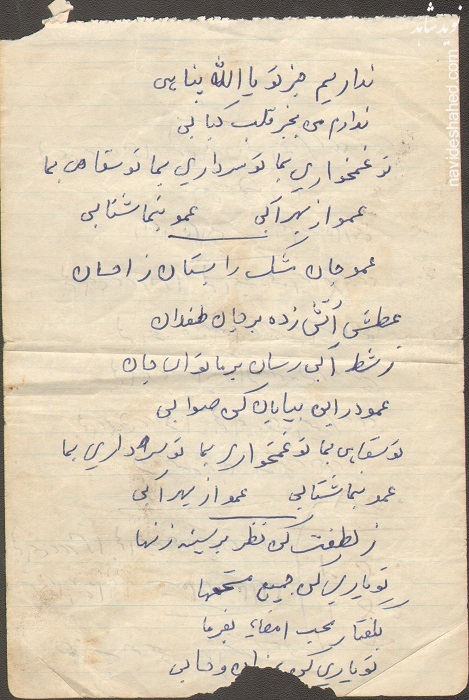 نوید شاهد
navideshahed.com
نداریم جز تو یا الله پناهی
ندارم من بجز قلب کبابی
تو غمخواری بما تو سرداری بما تو سقاهی بما
عمو از بهر آبی عمو بنما شتابی
عمو جان مشک را بستان ز احسان
عطش آتش زده بر جان طفلان
ز شط آبی رسان بر ما تو ای جان
عمو در این بیابان کن صوابی
تو سقاهی بما تو غمخواری بما تو سرداری بما
عمو بنما شتابی عمو از بهر آبی
ز لطفت کن نظر بر سینه زنها
تو یاری کن جمیع
بفرما
تو یاری کن